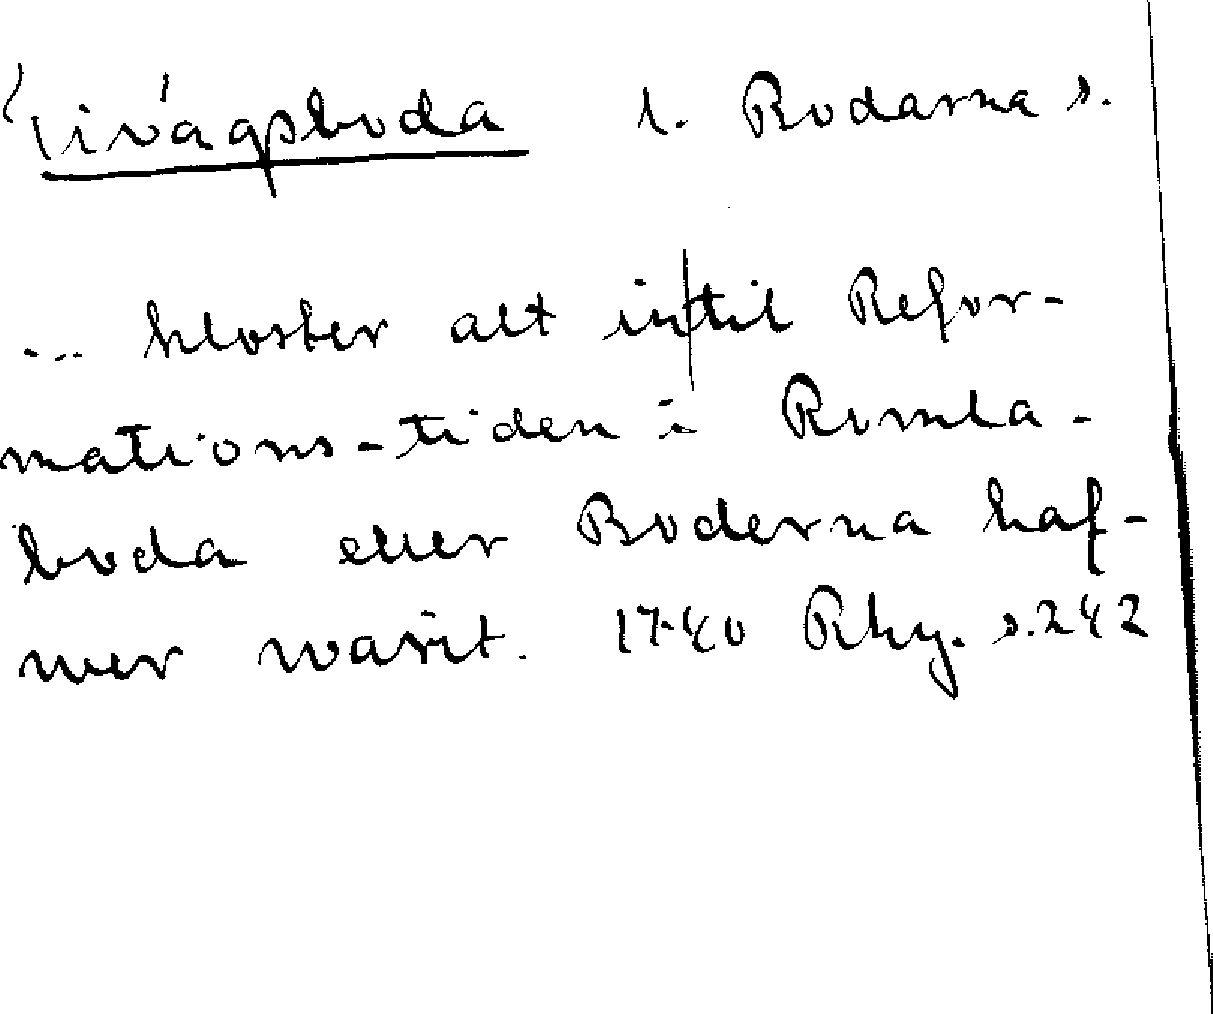 l. Bodarna s.
... kloster alt in|til Refor-
mations-tiden i Rumla-
boda eller Boderna haf-
wer warit. 1740 Rhy. s.242